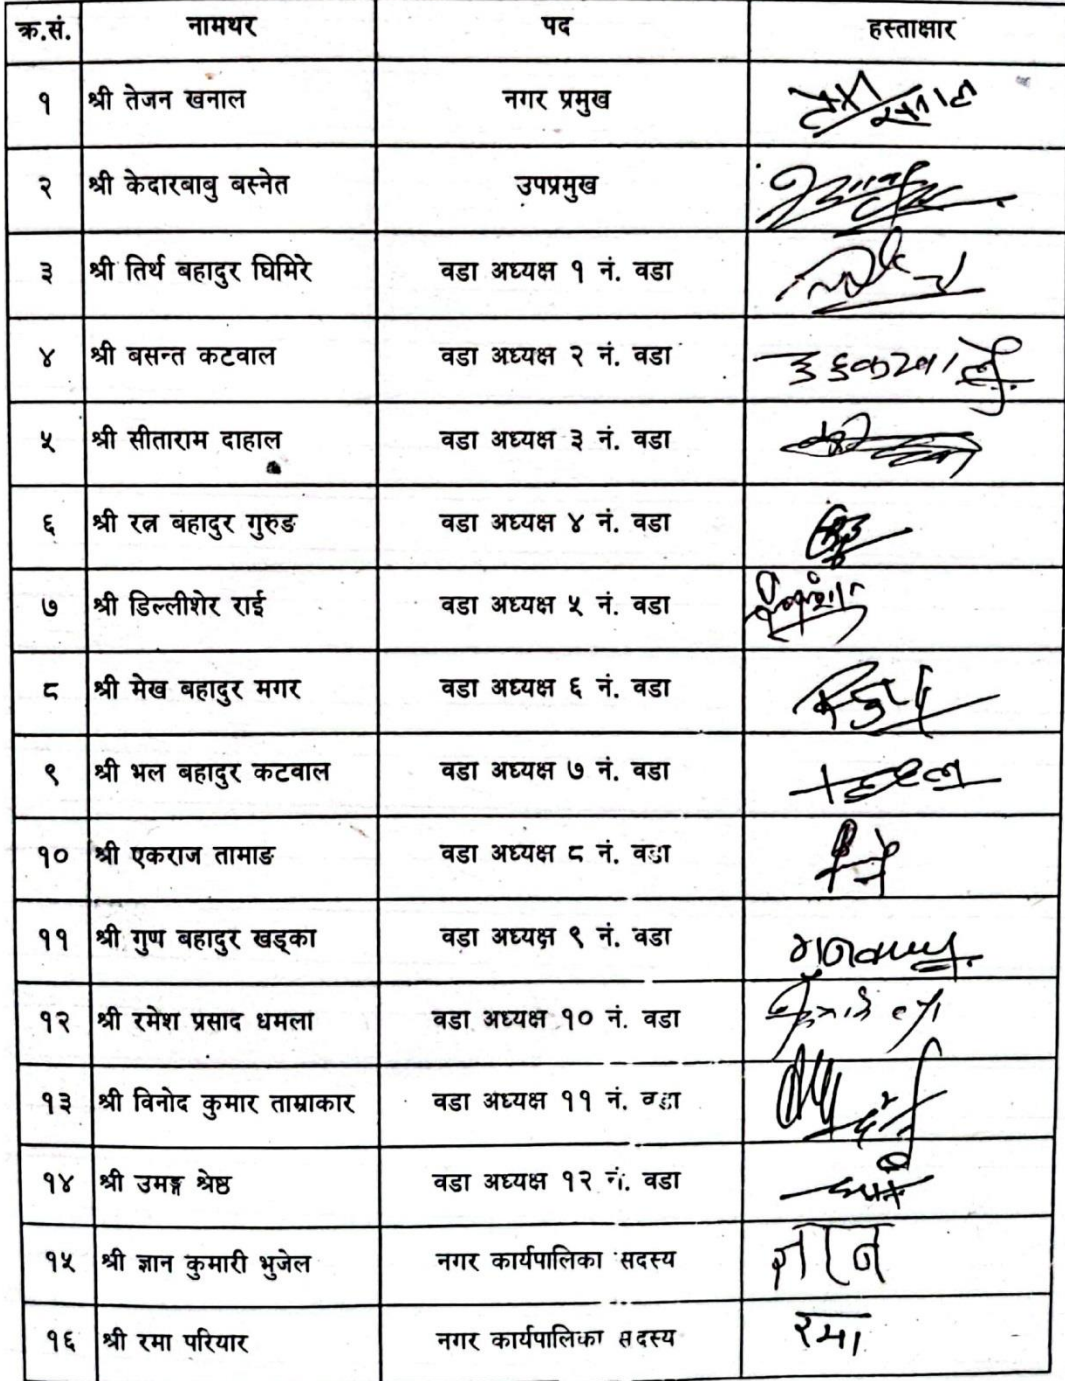 क्र.सं. नामथर पद हस्ताक्षार
१ श्री तेजन खनाल नगर प्रमुख
२ श्री केदारबाबु बस्नेत उपप्रमुख
३ श्री तिर्थ बहादुर घिमिरे वडा अध्यक्ष १ नं. वडा
४ श्री बसन्त कटवाल वडा अध्यक्ष २ नं. वडा
५ श्री सीताराम दाहाल वडा अध्यक्ष ३ नं. वडा
६ श्री रत्न बहादुर गुरुङ वडा अध्यक्ष ४ नं. वडा
७ श्री डिल्लीशेर राई वडा अध्यक्ष ५ नं. वडा
८ श्री मेख बहादुर मगर वडा अध्यक्ष ६ नं. वडा
९ श्री भल बहादुर कटवाल वडा अध्यक्ष ७ नं. वडा
१० श्री एकराज तामाङ वडा अध्यक्ष ८ नं. वडा
११ श्री गुण बहादुर खड्का वडा अध्यक्ष ९ नं. वडा
१२ श्री रमेश प्रसाद धमला वडा अध्यक्ष १० नं. वडा
१३ श्री विनोद कुमार ताम्राकार वडा अध्यक्ष ११ नं. वडा
१४ श्री उमङ्ग श्रेष्ठ वडा अध्यक्ष १२ नं. वडा
१५ श्री ज्ञान कुमारी भुजेल नगर कार्यपालिका सदस्य ज्ञान
१६ श्री रमा परियार नगर कार्यपालिका सदस्य रमा